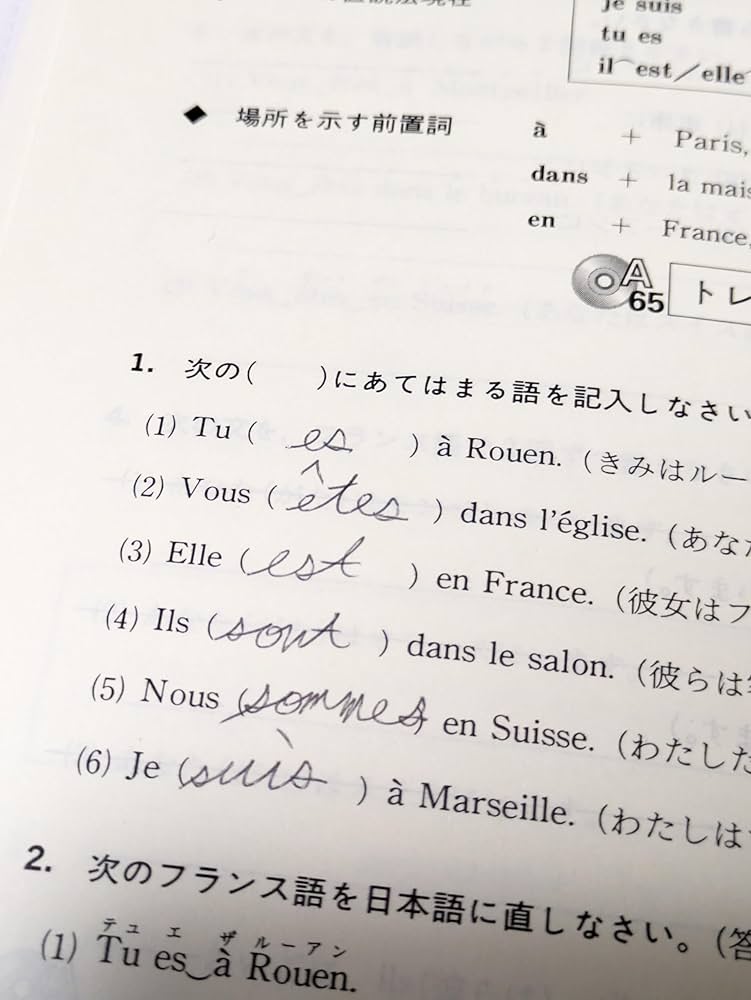 je suis
tu es
il est／elle
◆ 場所を示す前置詞 à + Paris,
dans + la mais
en + France,
A 65 トレ
1. 次の( )にあてはまる語を記入しなさい
(1) Tu ( es ) à Rouen. (きみはルー
(2) Vous ( êtes ) dans l'église. (あな
(3) Elle ( est ) en France. (彼女はフ
(4) Ils ( sont ) dans le salon. (彼らは
(5) Nous ( sommes ) en Suisse. (わたした
(6) Je ( suis ) à Marseille. (わたしは
2. 次のフランス語を日本語に直しなさい。(答
テュ エ ザ ルーアン
(1) Tu es‿à Rouen.